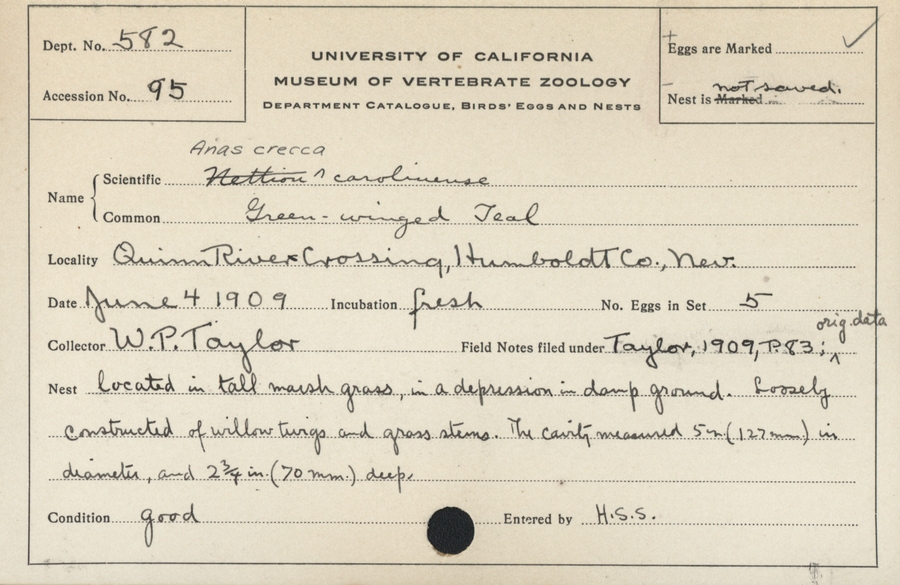 Dept. No. 582
Accession No. 95
UNIVERSITY OF CALIFORNIA
MUSEUM OF VERTEBRATE ZOOLOGY
DEPARTMENT CATALOGUE, BIRDS' EGGS AND NESTS
Eggs are Marked ✓
not saved.
Nest is Marked
Anas crecca
Name
Scientific Nettion ^ carolinense
Common Green-winged Teal
Locality Quinn River Crossing, Humboldt Co., Nev.
Date June 4 1909 Incubation fresh No. Eggs in Set 5
orig. data
Collector W.P. Taylor Field Notes filed under Taylor, 1909, P. 83; ^
Nest located in tall marsh grass, in a depression in damp ground. Loosely
constructed of willow twigs and grass stems. The cavity measured 5 in. (127 mm.) in
diameter, and 2 3/4 in. (70 mm.) deep.
Condition good Entered by H.S.S.